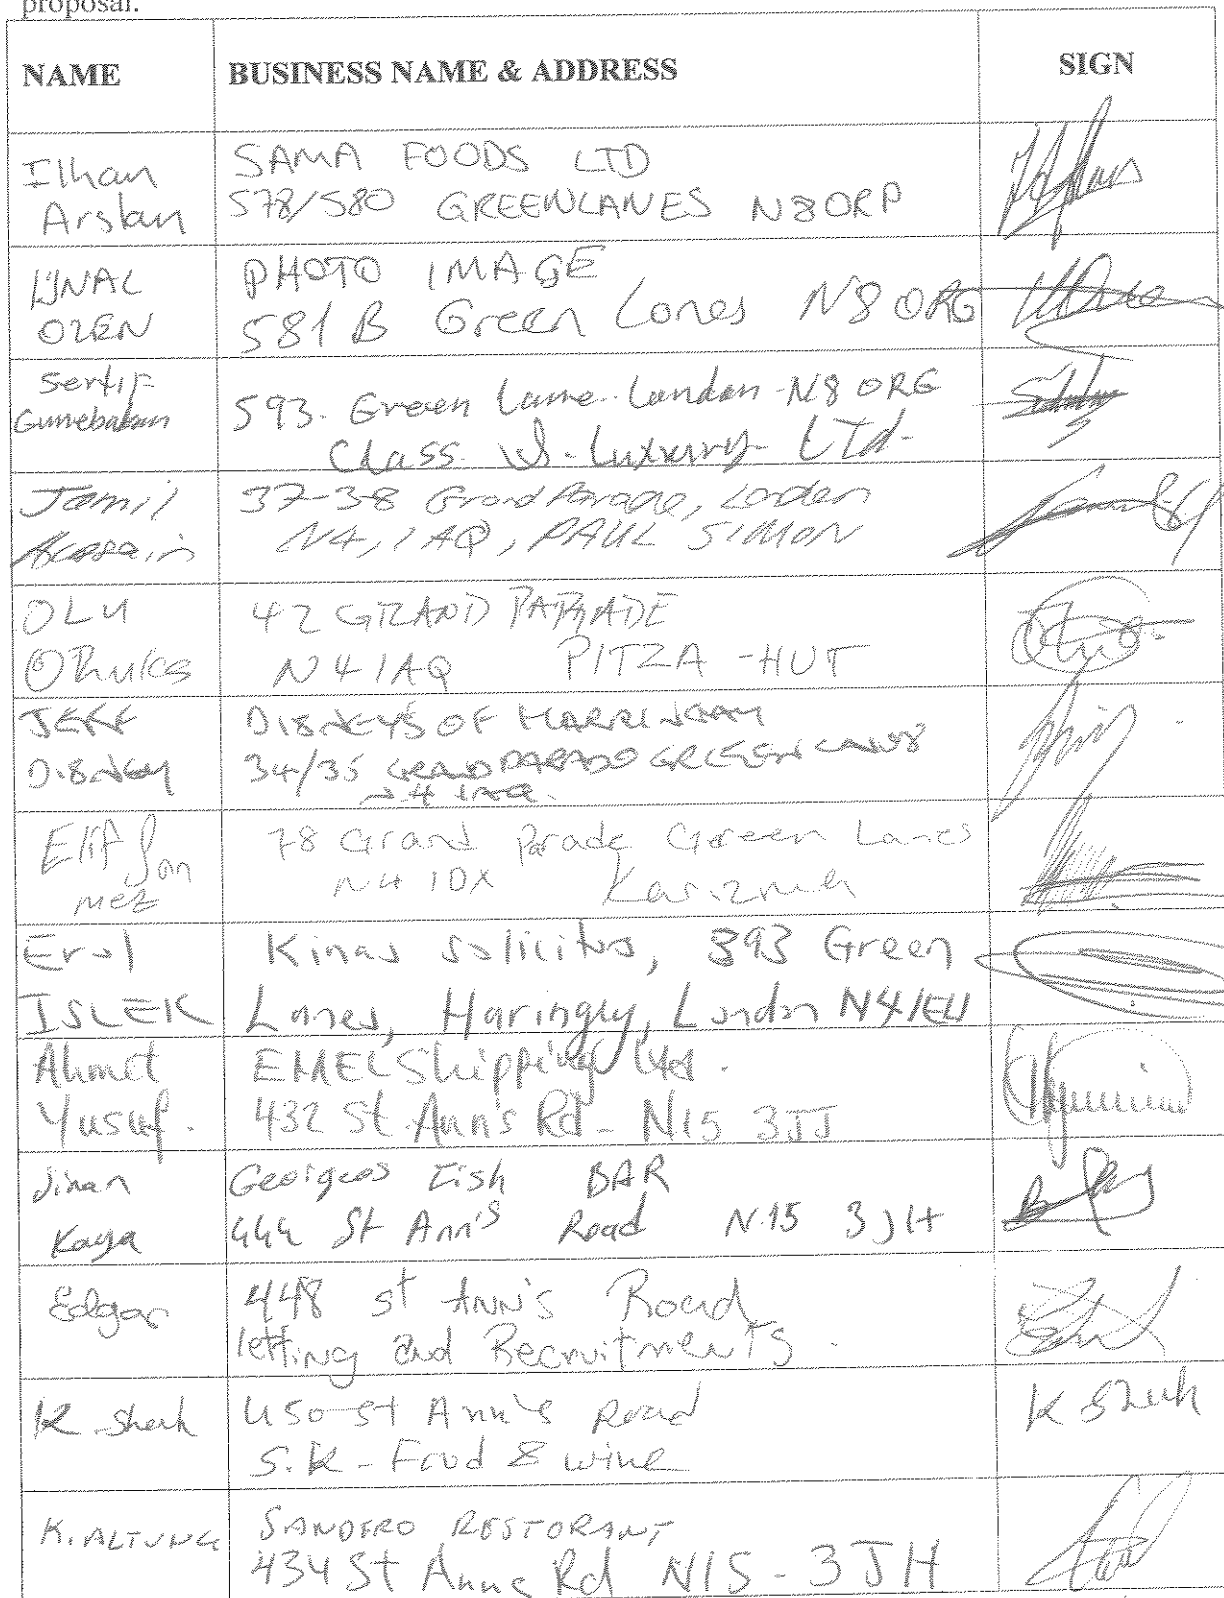 proposal.
NAME BUSINESS NAME & ADDRESS SIGN
Ilhan SAMA FOODS LTD
Arslan 578/580 GREENLANES N8ORP
ÜNAL PHOTO IMAGE
OZEN 581 B Green Lanes N8 ORG
Sertif 593. Green Lane. London - N8 ORG
Class. Luxury LTd-
Jamil 37-38 Grand Parade, London
Hussain N4, 1AQ, PAUL SIMON
OLU 42 GRAND PARADE
N4 1AQ PITZA - HUT
JEFF DISNEYS OF HARRINGAY
DISNEY 34/35 GRAND PARADE GREEN LANES
N4 1AQ.
Elif Son 78 Grand Parade Green Lanes
mez N4 1DX Karizma
Erol Kinas solicitors, 393 Green
ISLEK Lanes, Haringey, London N4 1EU
Ahmet EMEL Shipping Ltd.
Yusuf. 432 St. Ann's Rd - N15 3JJ
Sinan Georges Fish BAR
Kaya 444 St Ann's Road N.15 3JH
Edgar 448 st ANN'S Road
letting and Recruitments.
K Sheh 450 st Ann's Road K Sheh
S.K - Food & wine
K. ALTUNG SANDERO RESTORANT
434 St Anne Rd N15 - 3JH